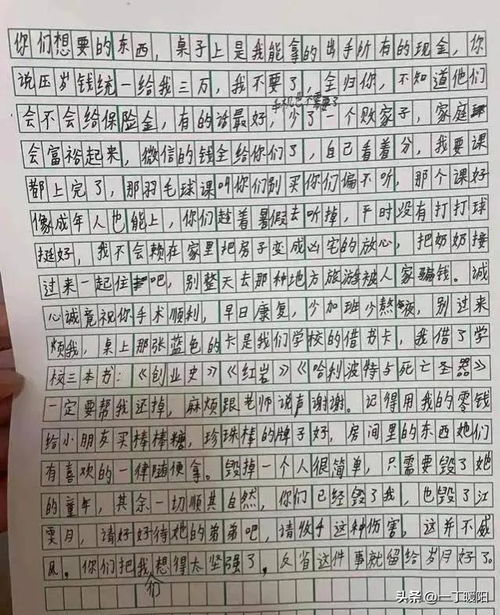 你们想要的东西，桌子上是我能拿的出手所有的现金，你
说压岁钱统一给我三万，我不要了，全归你，不知道他们
手机也不需要了
会不会给保险金，有的话最好，少了一个败家子，家庭
会富裕起来，微信的钱全给你们了，自己看着分，我要课
都上完了，那羽毛球课叫你们别买你们偏不听，那个课好
像成年人也能上，你们趁着暑假去听掉，平时没有打打球
挺好，我不会赖在家里把房子变成凶宅的放心，把奶奶接
过来一起住吧，别整天去那种地方旅游被人家骗钱。诚
心诚意祝你手术顺利，早日康复，少加班少熬夜，别过来
烦我，桌上那张蓝色的卡是我们学校的借书卡，我借了学
校三本书：《创业史》《红岩》《哈利波特与死亡圣器》
一定要帮我还掉，麻烦跟老师说声谢谢。记得用我的零钱
给小朋友买棒棒糖，珍珠棒的牌子好，房间里的东西她们
有喜欢的一律随便拿。毁掉一个人很简单，只需要毁了她
的童年，其余一切顺其自然，你们已经毁了我，也毁了江
雯月，请好好待她的弟弟吧，请收手这种伤害，这并不威
风。你们把我想得太坚强了。反省这件事就留给岁月好了。
你
头条 @一丁暖阳